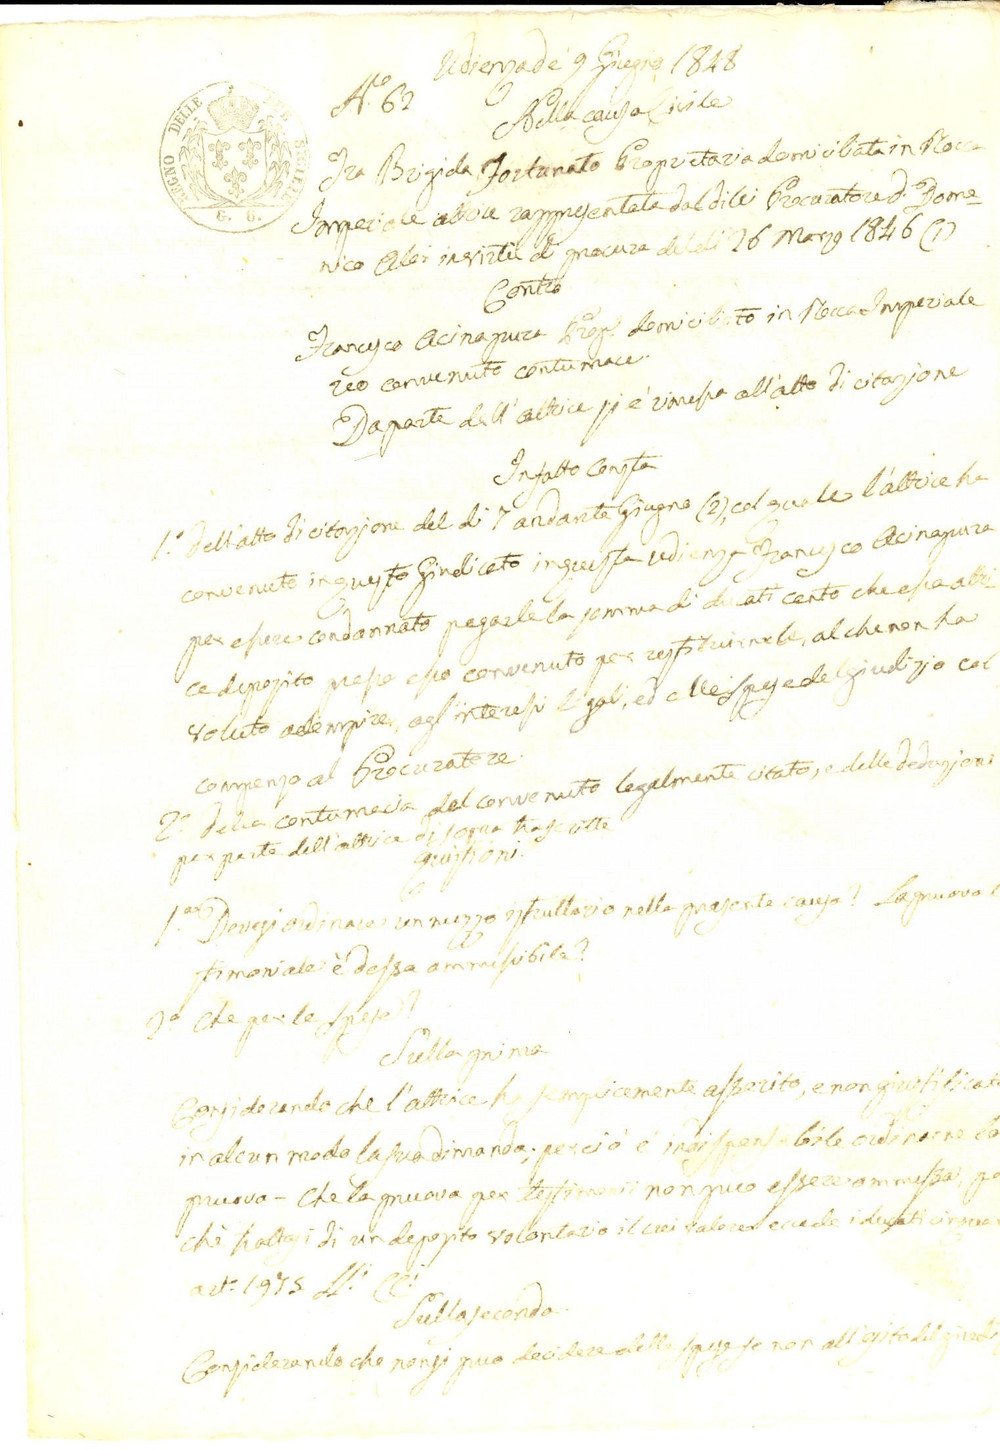 Udienza de' 9 Giugno 1848
N.° 62
Nella causa Civile
REGNO DELLE DUE SICILIE
G. 6.
Tra Brigida Fortunato Proprietaria domiciliata in Rocca
Imperiale attrice rappresentata dal di lei Procuratore D. Dome=
nico Aloi in virtù di procura del dì 26 Marzo 1846 (1)
Contro
Francesco Acinapura Prop. domiciliato in Rocca Imperiale
reo convenuto contumace.
Da parte dell'attrice si è rimessa all'atto di citazione
In fatto Consta
1.° Dell'atto di citazione del dì 7 andante Giugno (2), col quale l'attrice ha
convenuto in questo Giudicato in questa udienza Francesco Acinapura
per essere condannato pagarle la somma di ducati cento che essa attri
ce depositò presso esso convenuto per restituirnele, al che non ha
voluto adempire, agl'interessi legali, ed alle spese del giudizio col
compenso al Procuratore.
2.° Della contumacia del convenuto legalmente citato, e delle deduzioni
per parte dell'attrice di sopra trascritte
Quistioni.
1.a Devesi ordinare un mezzo istruttorio nella presente causa? La pruova te
stimoniale è dessa ammessibile?
2.a Che per le spese?
Sulla prima
Considerando che l'attrice ha semplicemente asserito, e non giustificato
in alcun modo la sua dimanda; perciò è indispensabile ordinarne la
pruova - Che la pruova per testimonii non può essere ammessa, per
chè trattasi di un deposito volontario il cui valore eccede i ducati cinquan
art. 1975 LL. CC.
Sulla seconda.
Considerando che non si può decidere delle spese se non all'esito del giudi